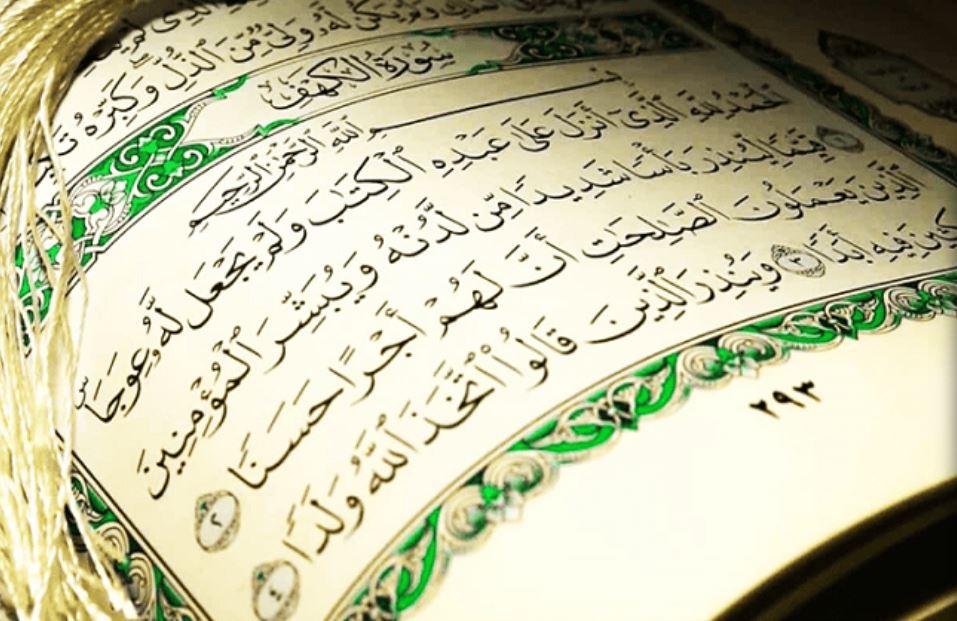 وَلَمْ يَكُن لَّهُۥ وَلِىٌّ مِّنَ ٱلذُّلِّ وَكَبِّرْهُ
سُورَةُ الكَهْفِ
بِسْمِ ٱللَّهِ ٱلرَّحْمَٰنِ ٱلرَّحِيمِ
ٱلْحَمْدُ لِلَّهِ ٱلَّذِىٓ أَنزَلَ عَلَىٰ عَبْدِهِ ٱلْكِتَٰبَ وَلَمْ يَجْعَل لَّهُۥ عِوَجَاۜ
١ قَيِّمًا لِّيُنذِرَ بَأْسًا شَدِيدًا مِّن لَّدُنْهُ وَيُبَشِّرَ ٱلْمُؤْمِنِينَ
ٱلَّذِينَ يَعْمَلُونَ ٱلصَّٰلِحَٰتِ أَنَّ لَهُمْ أَجْرًا حَسَنًا ٢
فِيهِ أَبَدًا ٣ وَيُنذِرَ ٱلَّذِينَ قَالُوا۟ ٱتَّخَذَ ٱللَّهُ وَلَدًا ٤
٢٩٣